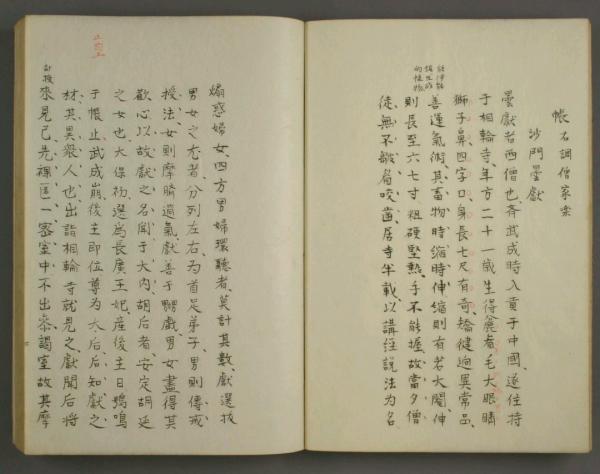 帳右調僧家樂
沙門曇獻
曇獻者西僧也齊武成時入貢于中國遂住持
于相輪寺年方二十一歲生得麄眉毛大眼睛
獅子鼻四字口身長七尺有奇矯健迥異常品
善運氣術其畜物時縮時伸縮則有若大閹伸
則長至六七寸粗硬堅熱手不能握故當夕僧
徒無不皺眉咬齒居寺半載以講經説法为名
煽惑婦女四方男婦環聽者莫計其數獻選拔
男女之尤者分列左右为首足弟子男則傳戒
授法女則摩臍過氣獻善于嬲戲男女盡得其
歡心以故獻之名聞于大内胡后者安定胡延
之女也大保初選爲長廣王妃産後主日鴞鳴
于帳上武成崩後主即位尊为太后后知獻之
材其異衆人也出詣相輪寺就見之獻聞后將
來見已先裸匿一密室中不出叅謁室故其摩